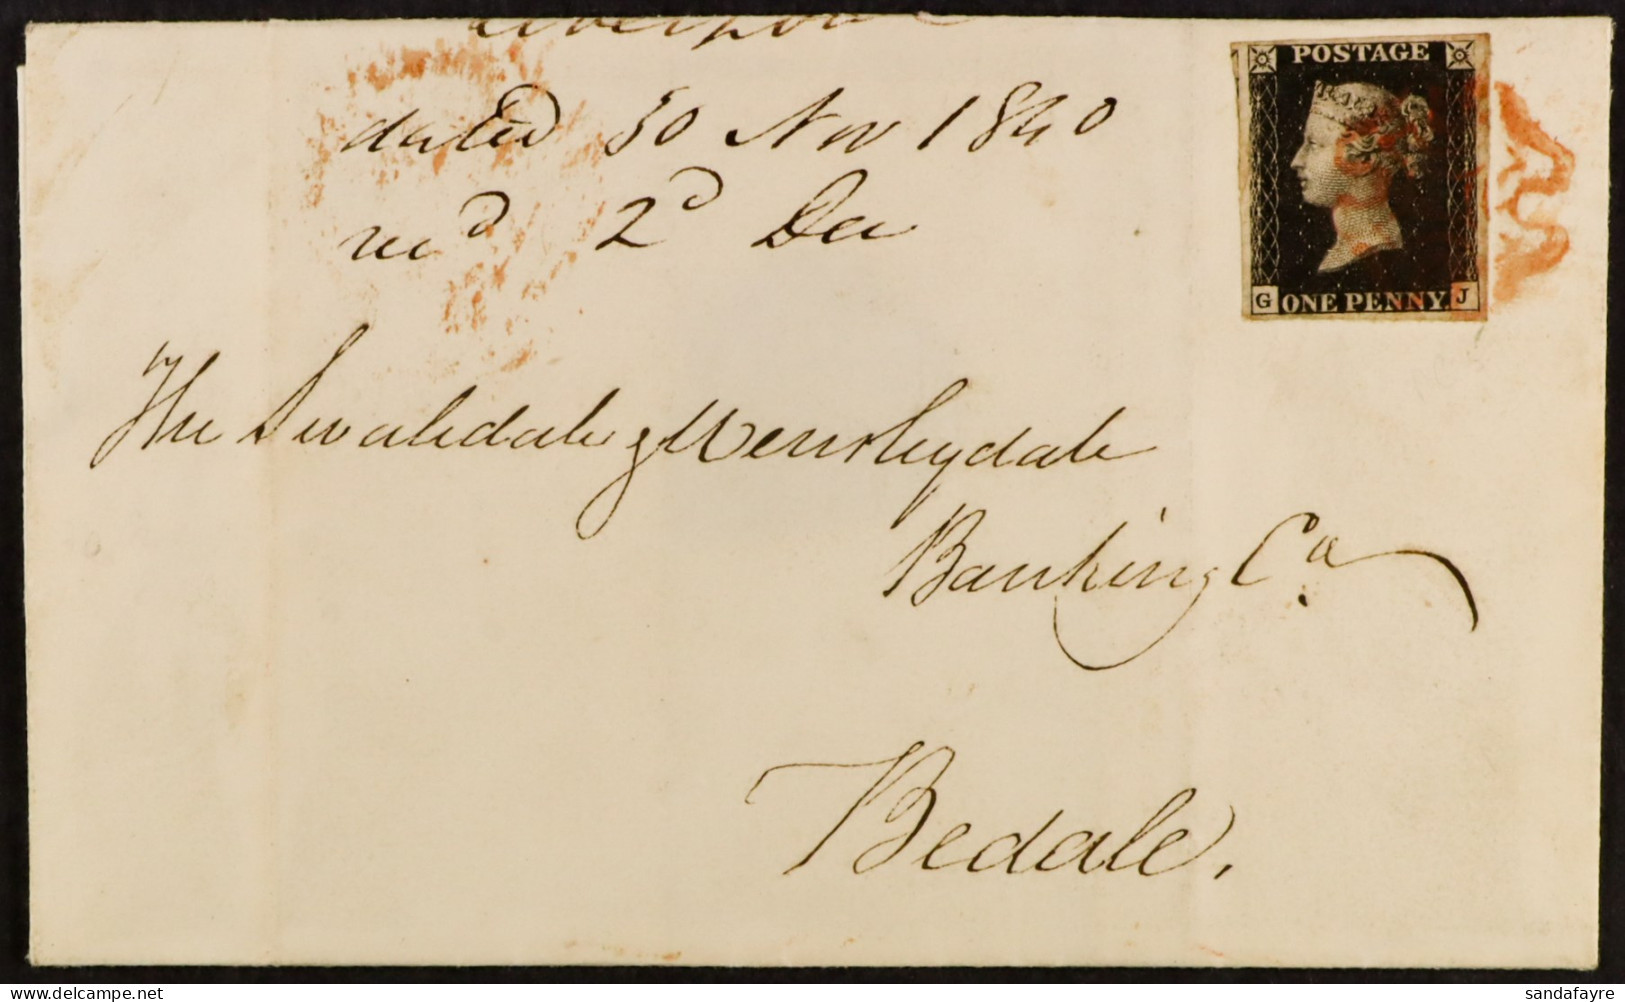 Liverpool
dated 30 Nov 1840
recd 2d Dec
POSTAGE
G ONE PENNY. J
The Swaledale & Wensleydale
Banking Co.
Bedale.
sandafayre